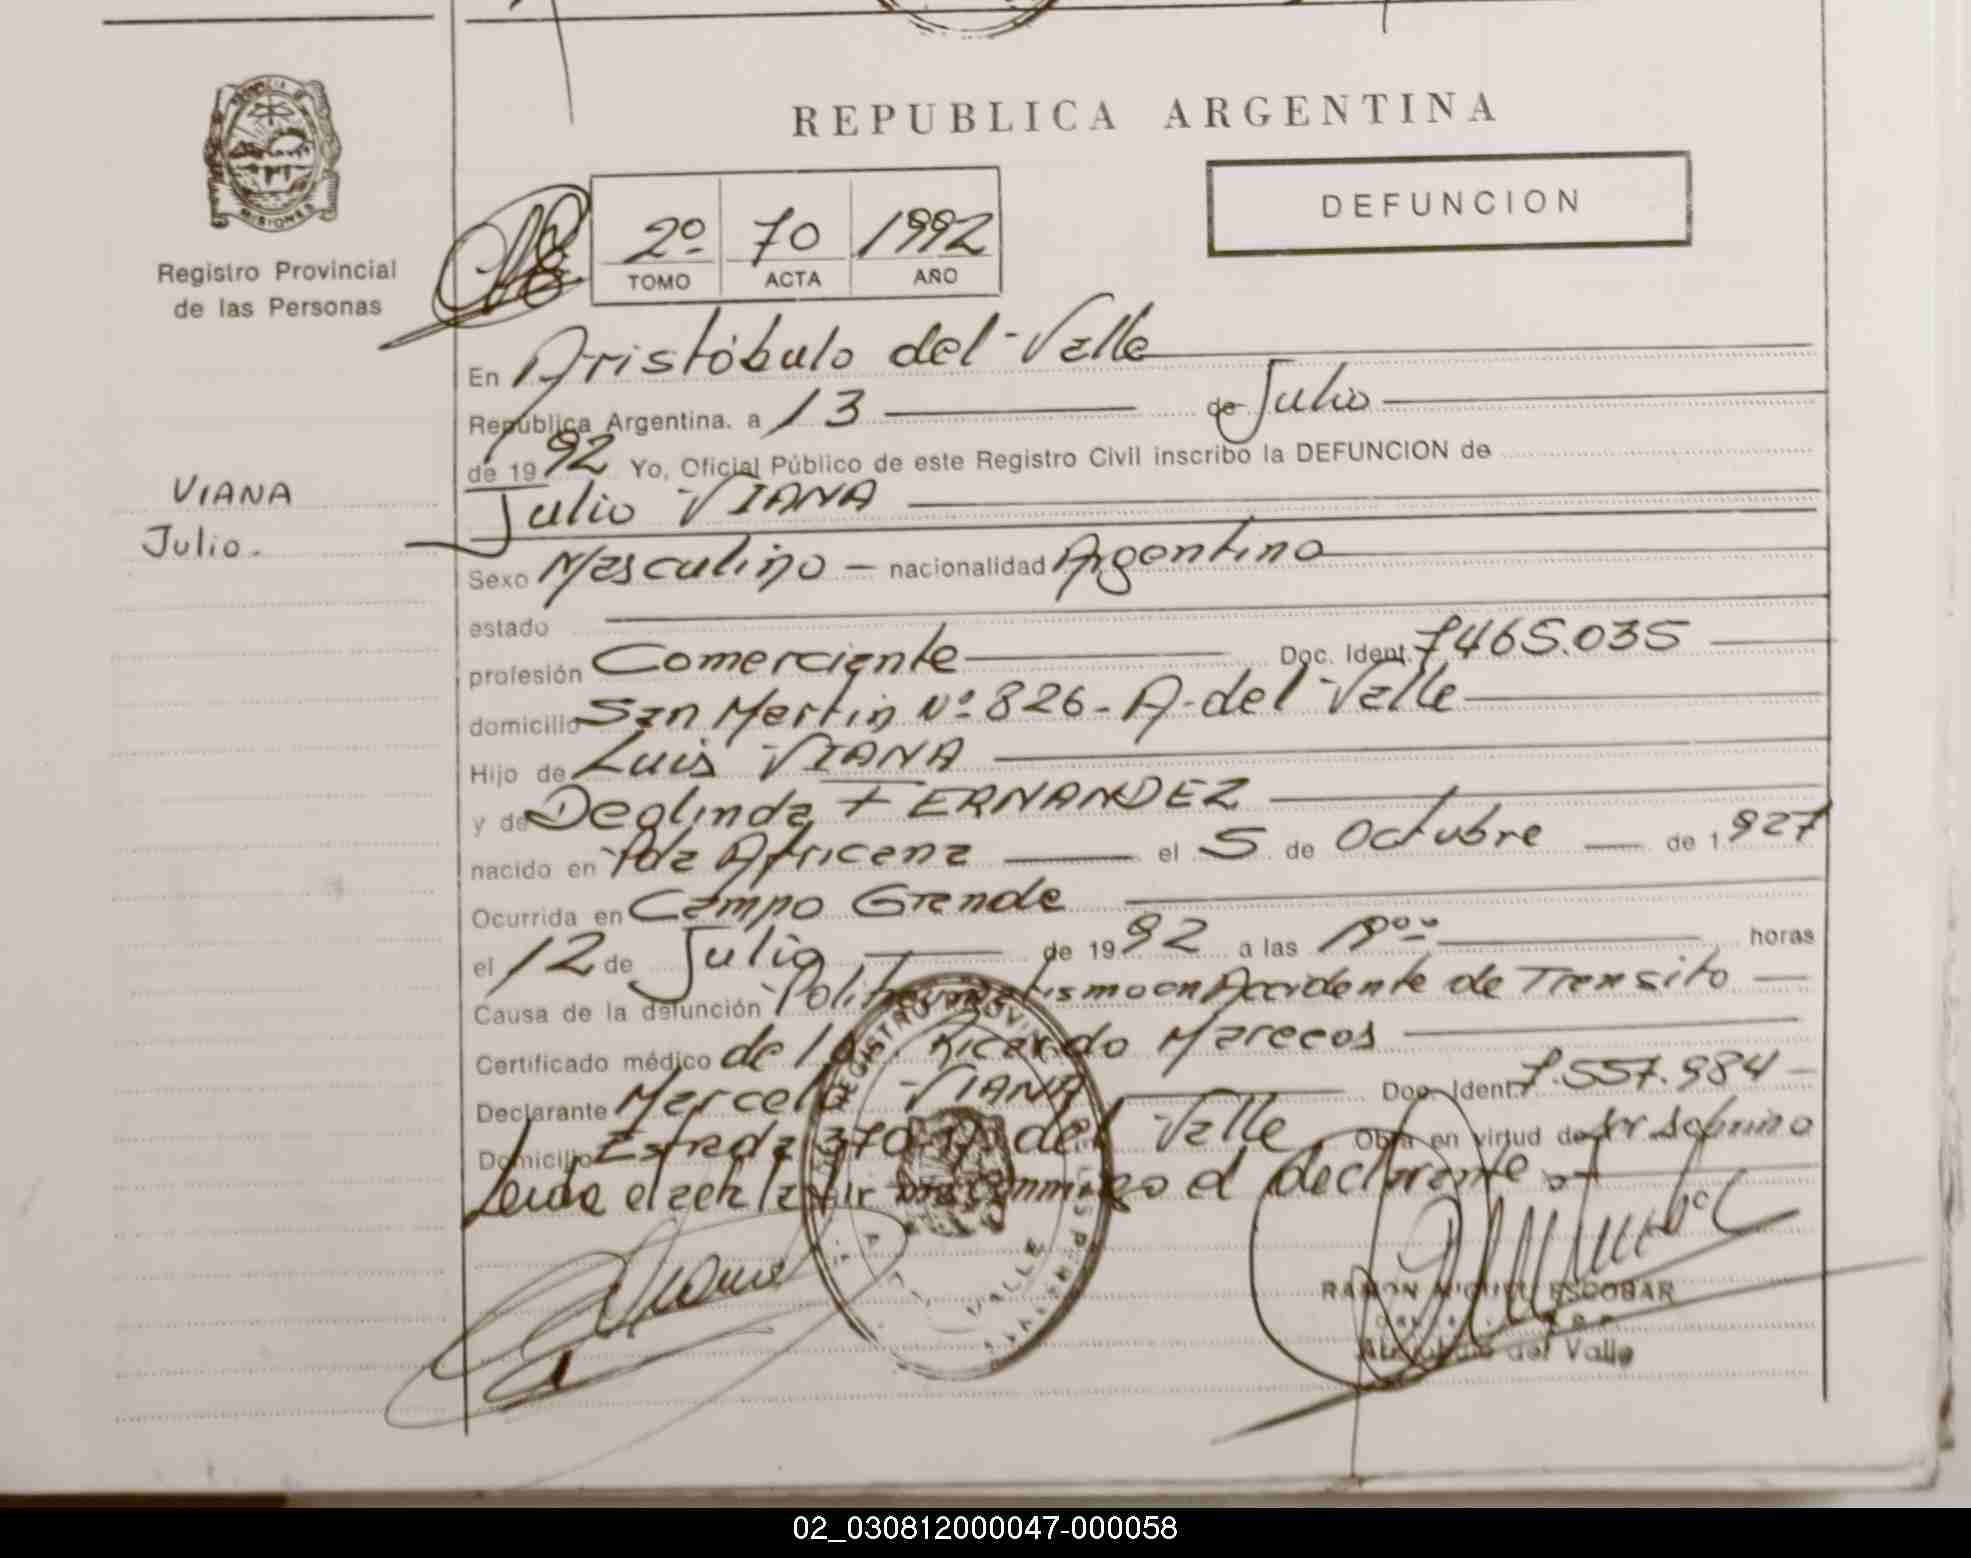 REPUBLICA ARGENTINA
DEFUNCION
MISIONES
Registro Provincial
de las Personas
2º 70 1992
TOMO ACTA AÑO
En Aristóbulo del Valle
República Argentina. a 13 de Julio
de 1992 Yo, Oficial Público de este Registro Civil inscribo la DEFUNCION de
VIANA
Julio.
Julio VIANA
Sexo Masculino - nacionalidad Argentino
estado
profesión Comerciante Doc. Ident. 7465.035
domicilio San Martin Nº 826 - A. del Valle
Hijo de Luis VIANA
y de Deolinda FERNANDEZ
nacido en Pda Africana el 5 de Octubre de 1.927
Ocurrida en Campo Grande
el 12 de Julio de 1992 a las 19ºº horas
Causa de la defunción Politraumatismo en Accidente de Transito
Certificado médico de Ricardo Marecos
Declarante Marcelo VIANA Doc. Ident. 7.557.984
Domicilio Estrada 370 A. del Valle Obra en virtud de ser sobrino
Leida el acta la conmigo el declarante
REGISTRO PROVINCIAL
PERSONAS
VALLE
RAMON MIGUEL ESCOBAR
Aristóbulo del Valle
02_030812000047-000058